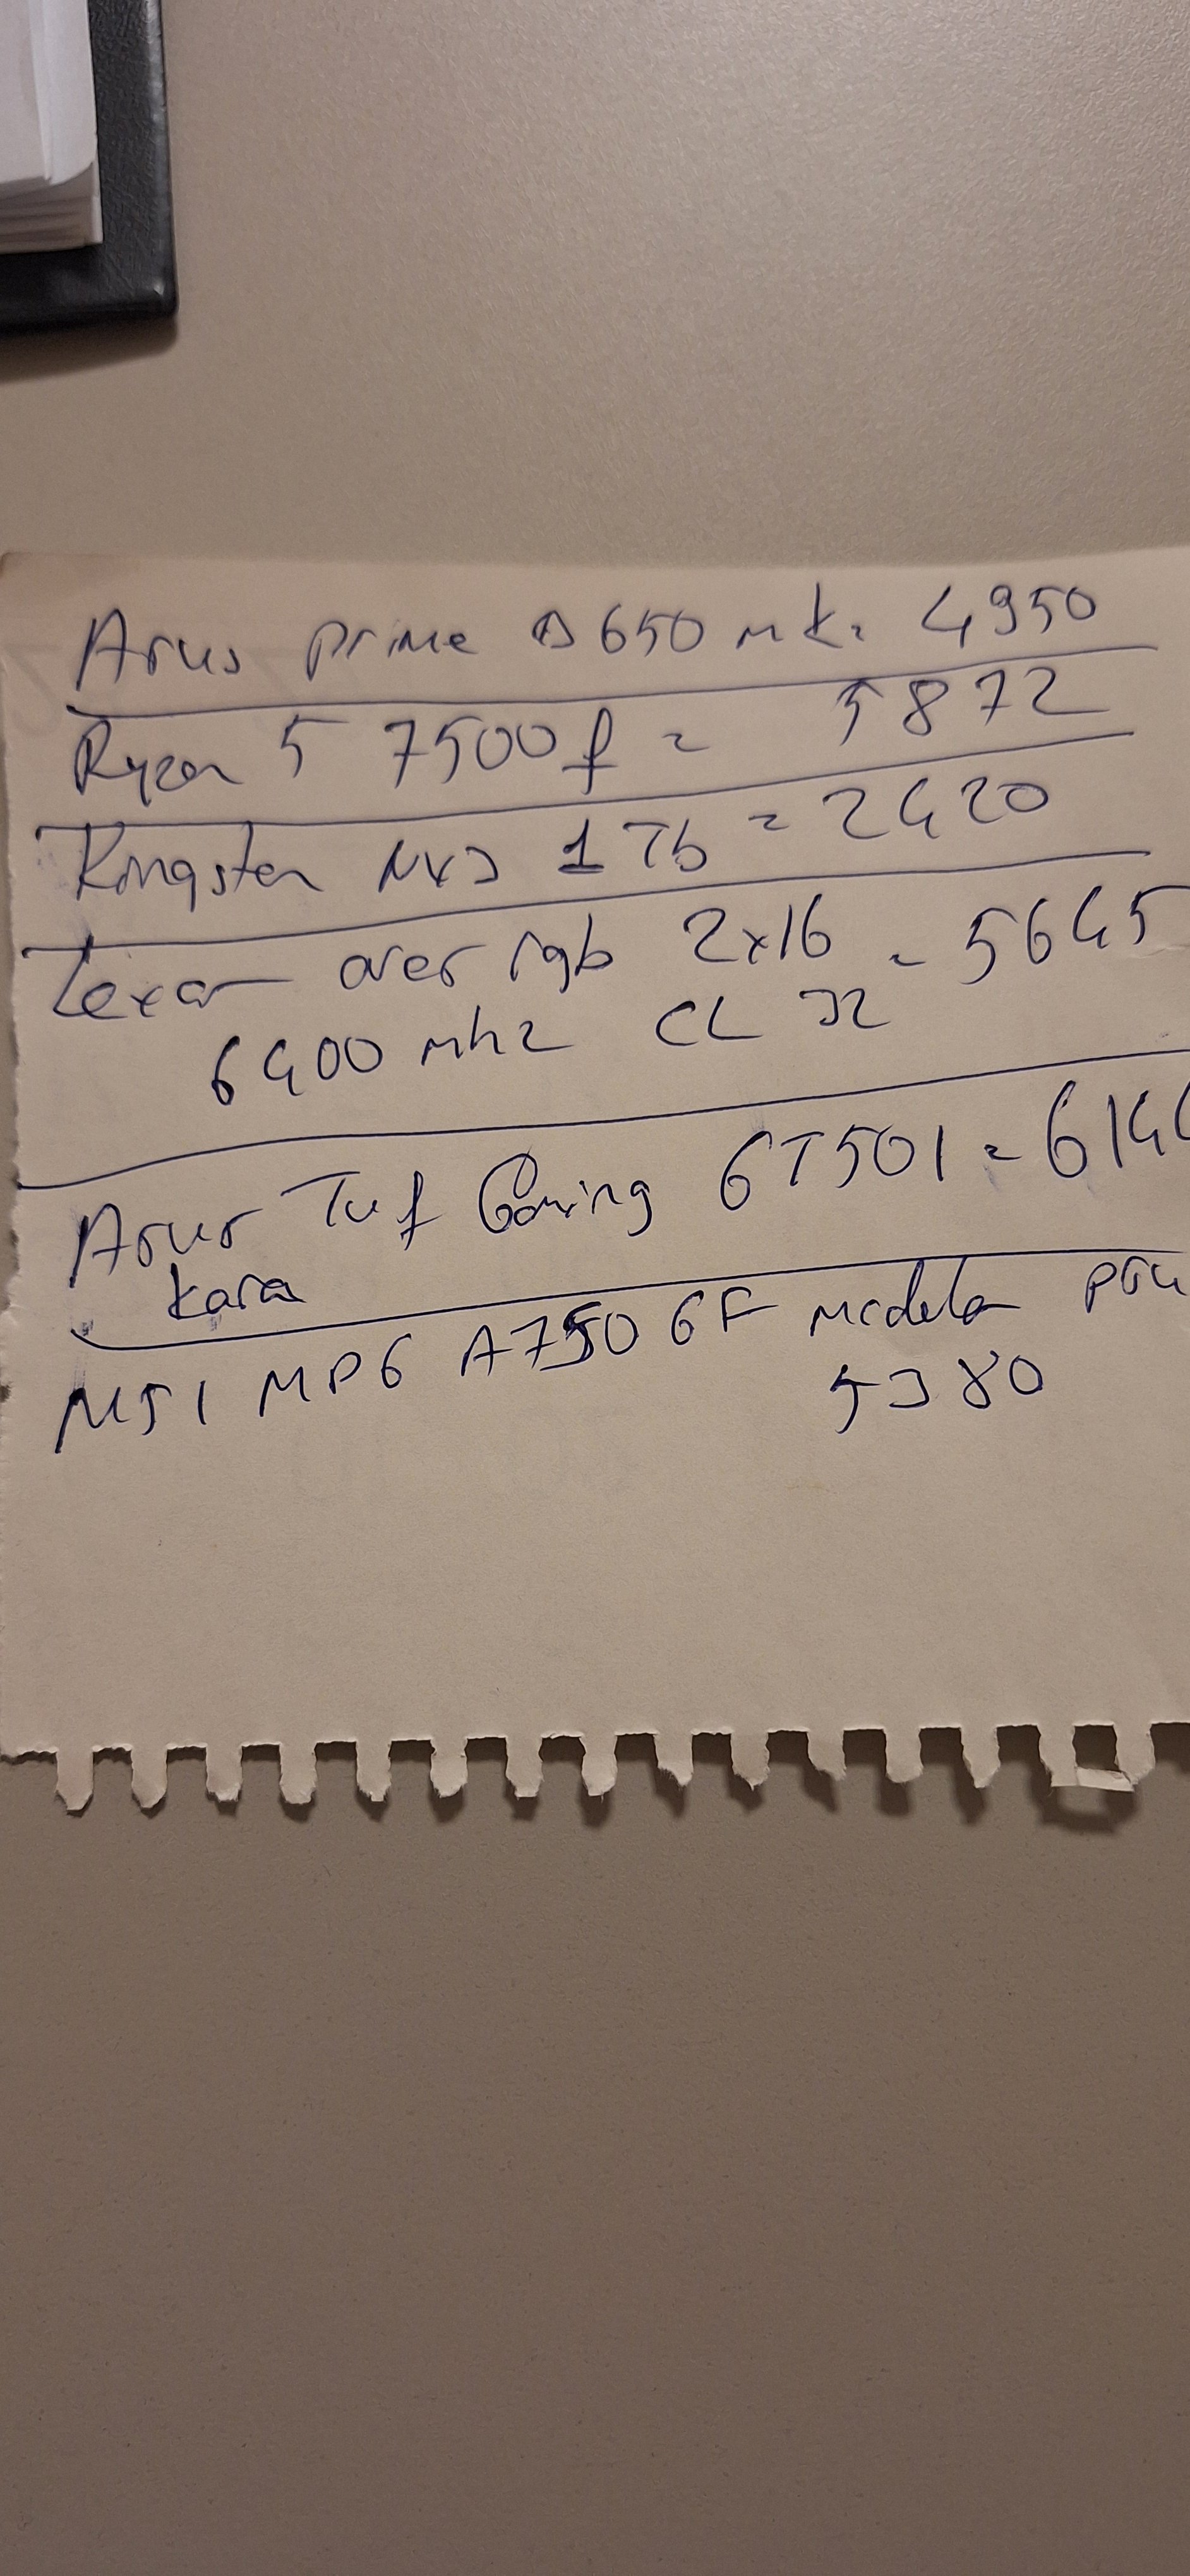 Asus prime B650 mk = 4950
Ryzen 5 7500f = 5872
Kingston NV3 1 Tb = 2420
Lexar ares rgb 2x16 = 5645
6400 mhz CL 32
Asus Tuf Gaming GT501 = 614
kasa
MSI MPG A750 GF modular PSU
5380